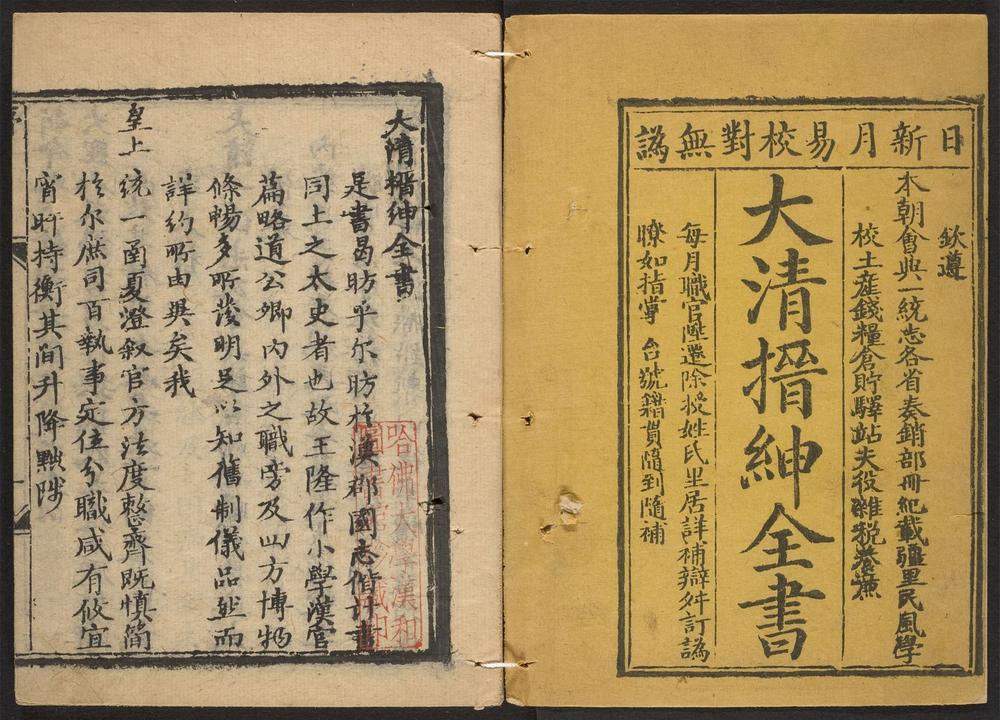 日新月易校對無譌
欽遵
本朝會典一統志各省奏銷部冊紀載疆里民風學
校土産錢糧倉貯驛站夫役雜税養亷
大清搢紳全書
每月職官陞遷除授姓氏里居詳補辯舛訂譌
瞭如指掌 台號籍貫隨到隨補
大清搢紳全書
是書曷昉乎尔昉於漢郡國志偕計書
同上之太史者也故王隆作小學漢官
篇略道公卿内外之職旁及四方博物
條暢多所發明足以知舊制儀品然而
詳約所由異矣我
皇上統一函夏澄叙官方法度整齊既慎簡
於尔庶司百執事定位分職咸有攸宜
宵旰持衡其间升降黜陟
哈佛大學漢和
圖書館珍藏印